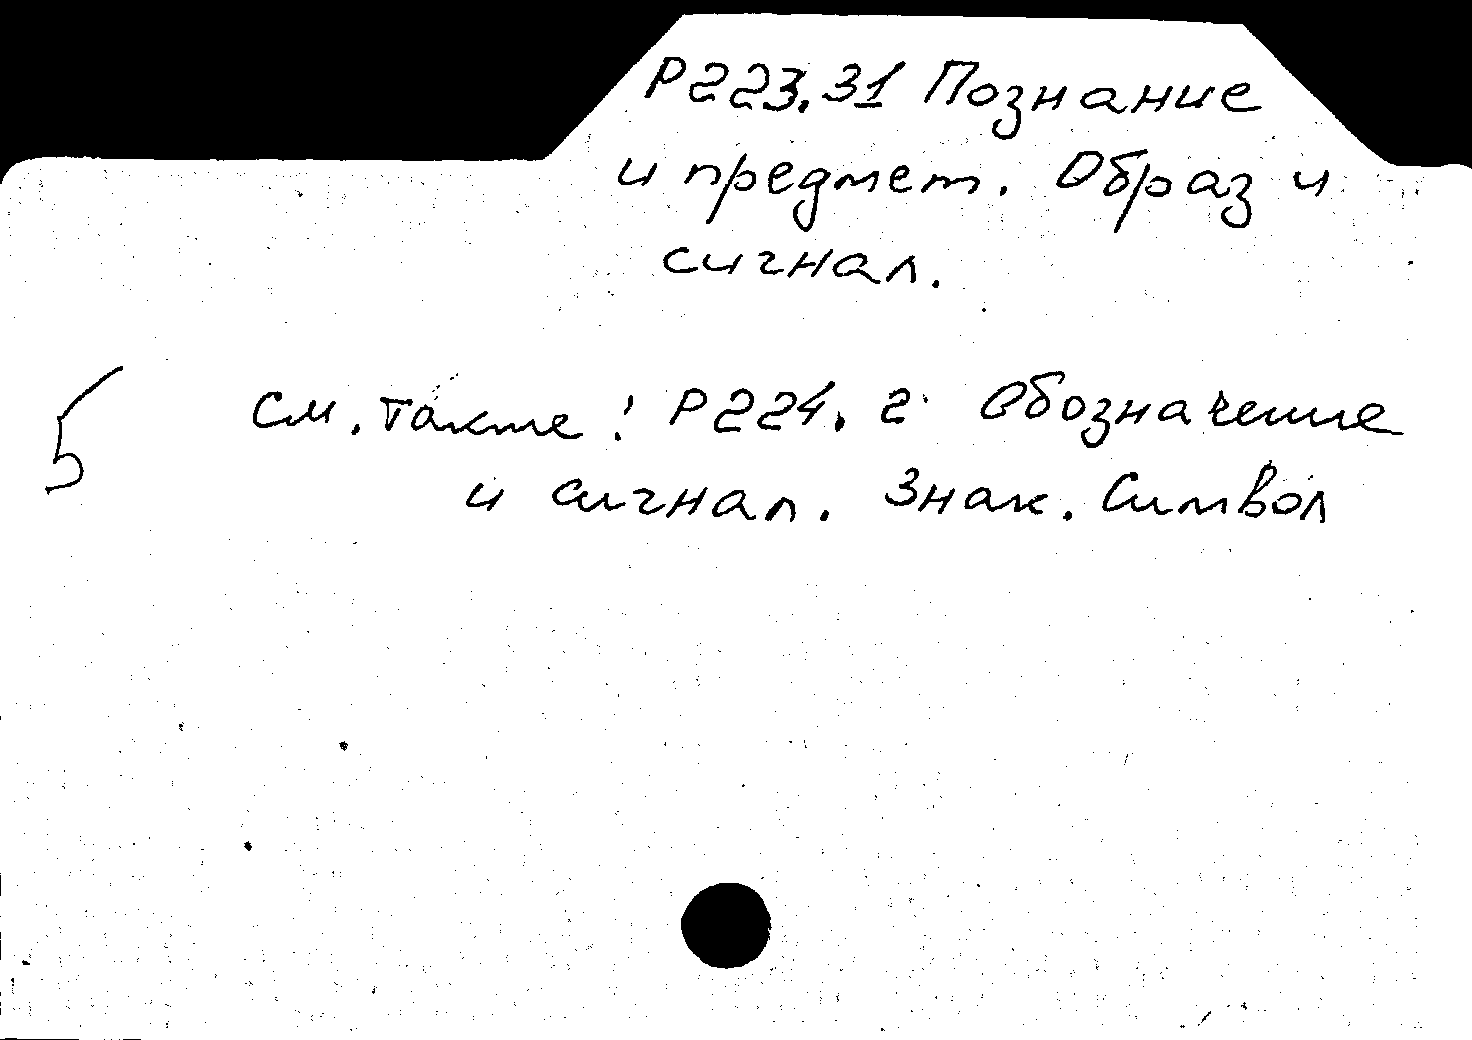 Р223.31 Познание
и предмет. Образ и
сигнал.
См. также: Р224.2 Обозначение
и сигнал. Знак. Символ
5